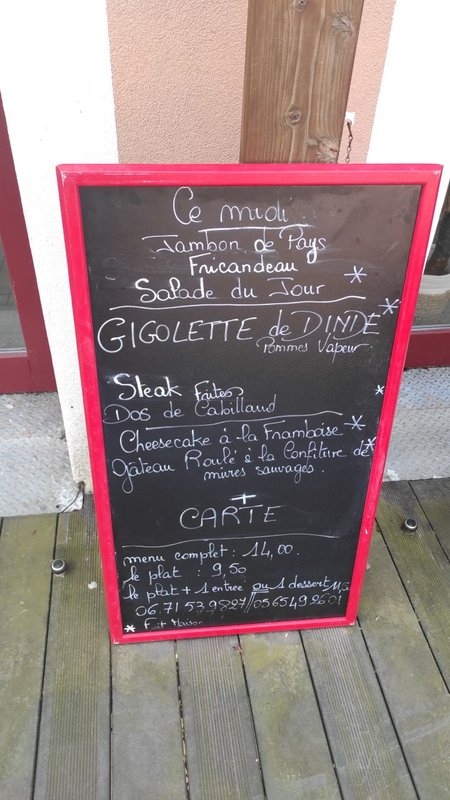 Ce midi
Jambon de Pays
Fricandeau
Salade du Jour *
GIGOLETTE de DINDE *
Pommes Vapeur
Steak Frites *
Dos de Cabillaud
Cheesecake à la Framboise *
Gâteau Roulé à la Confiture de *
mûres sauvages.
+
CARTE
menu complet : 14,00.
le plat : 9,50
le plat + 1 entrée ou 1 dessert
06.71.53.98.27//05.65.49.26.01
* Fait Maison